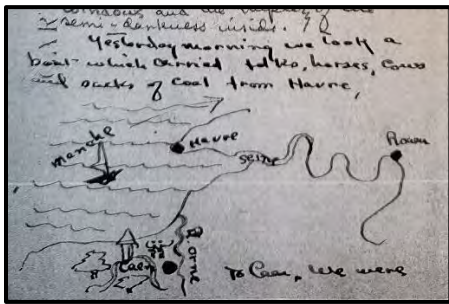 windows and the
semi-darkness inside.
Yesterday morning we took a
boat which carried folks, horses, cows
and sacks of coal from Havre,
Manche
Havre
Seine
Rouen
R. Orne
Caen
To Caen, we were